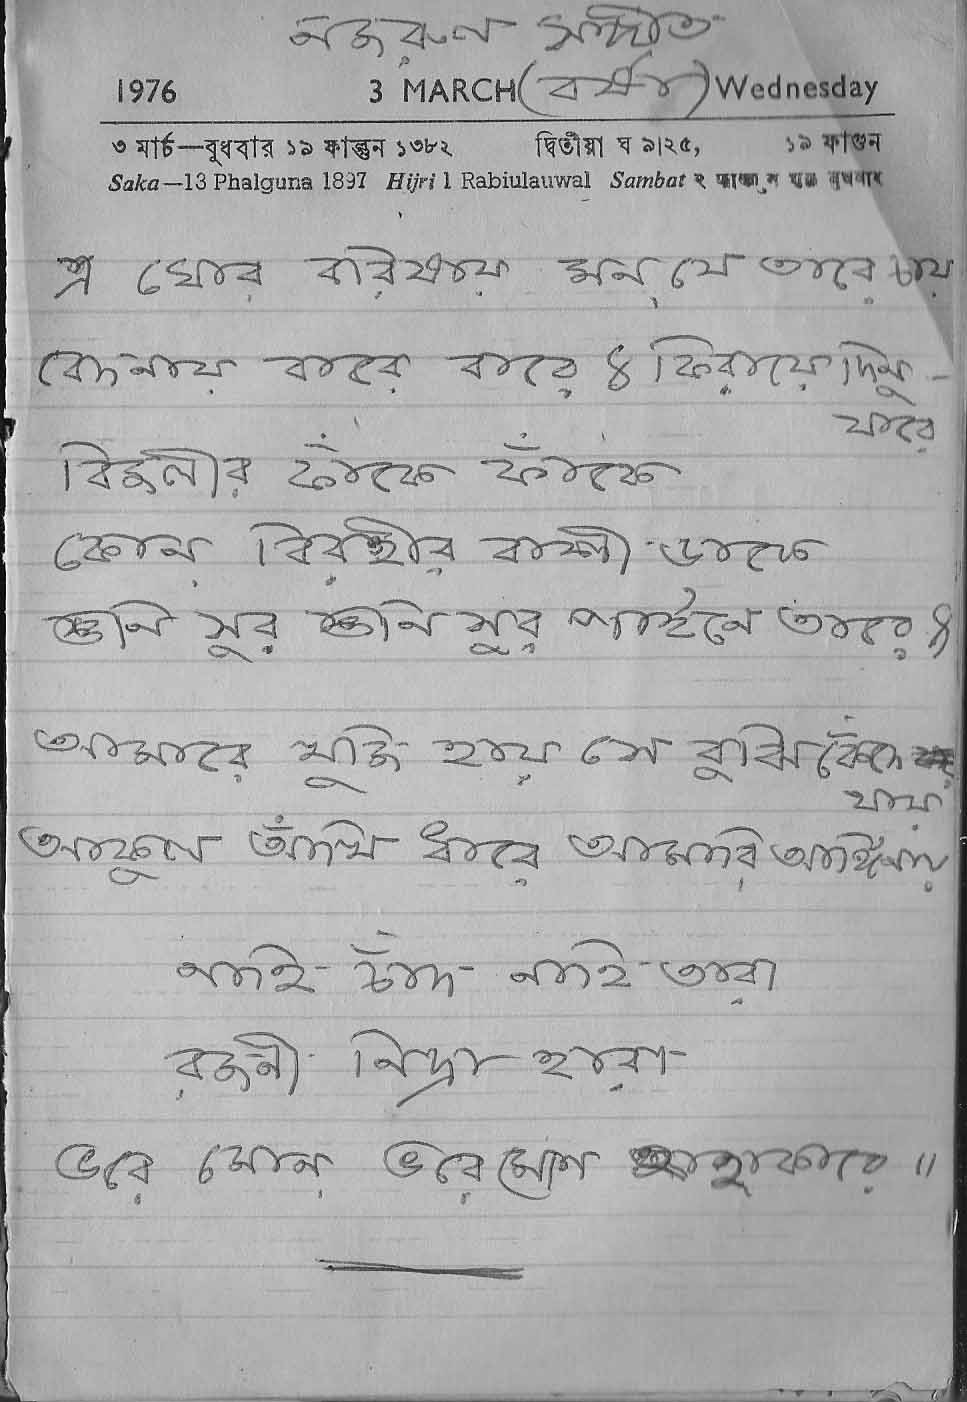 নজরুল সঙ্গীত
1976 3 MARCH (বর্ষা) Wednesday
৩ মার্চ—বুধবার ১৯ ফাল্গুন ১৩৮২ দ্বিতীয়া ঘ ৯।২৫, ১৯ ফাগুন
Saka—13 Phalguna 1897 Hijri 1 Rabiulauwal Sambat २ फाल्गुन शुक्ल बुधवार
এ ঘোর বরিষায় মন যে তারে চায়
বেদনায় বারে বারে ৪ ফিরায়ে দিনু -
যারে
বিজলীর ফাঁকে ফাঁকে
কোন বিরহীর বাঁশী ডাকে
শুনি সুর শুনি সুর পাইনে তারে ৪
আমারে খুজি হায় সে বুঝি কেঁদে
যায়
আকুল আঁখি ধারে আমারি আঙিনায়
নাই চাঁদ নাই তারা
রজনী নিদ্রা হারা
ভরে মোন ভরে মোন হাহাকারে ॥